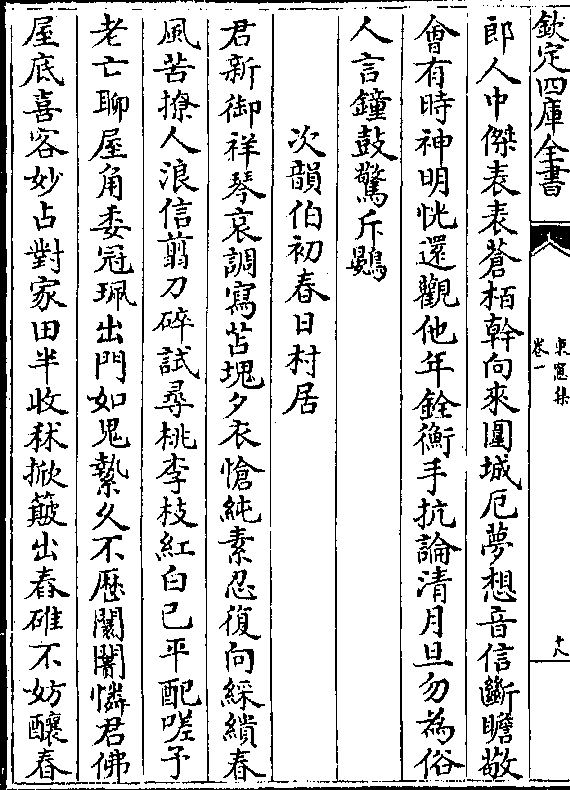 欽定四庫全書
東窻集
卷一
十八
郎人中傑表表蒼栢幹向來圍城厄夢想音信斷瞻敬
會有時神明恍還觀他年銓衡手抗論清月旦勿為俗
人言鐘鼓驚斥鷃
次韻伯初春日村居
君新御祥琴哀調寫苫塊夕衣愴純素忍復向綵繢春
風苦撩人浪信翦刀碎試尋桃李枝紅白已平配嗟予
老亡聊屋角委冠珮出門如鬼縶久不歷闤闠憐君佛
屋底喜客妙占對家田半收秫掀簸出舂碓不妨釀春